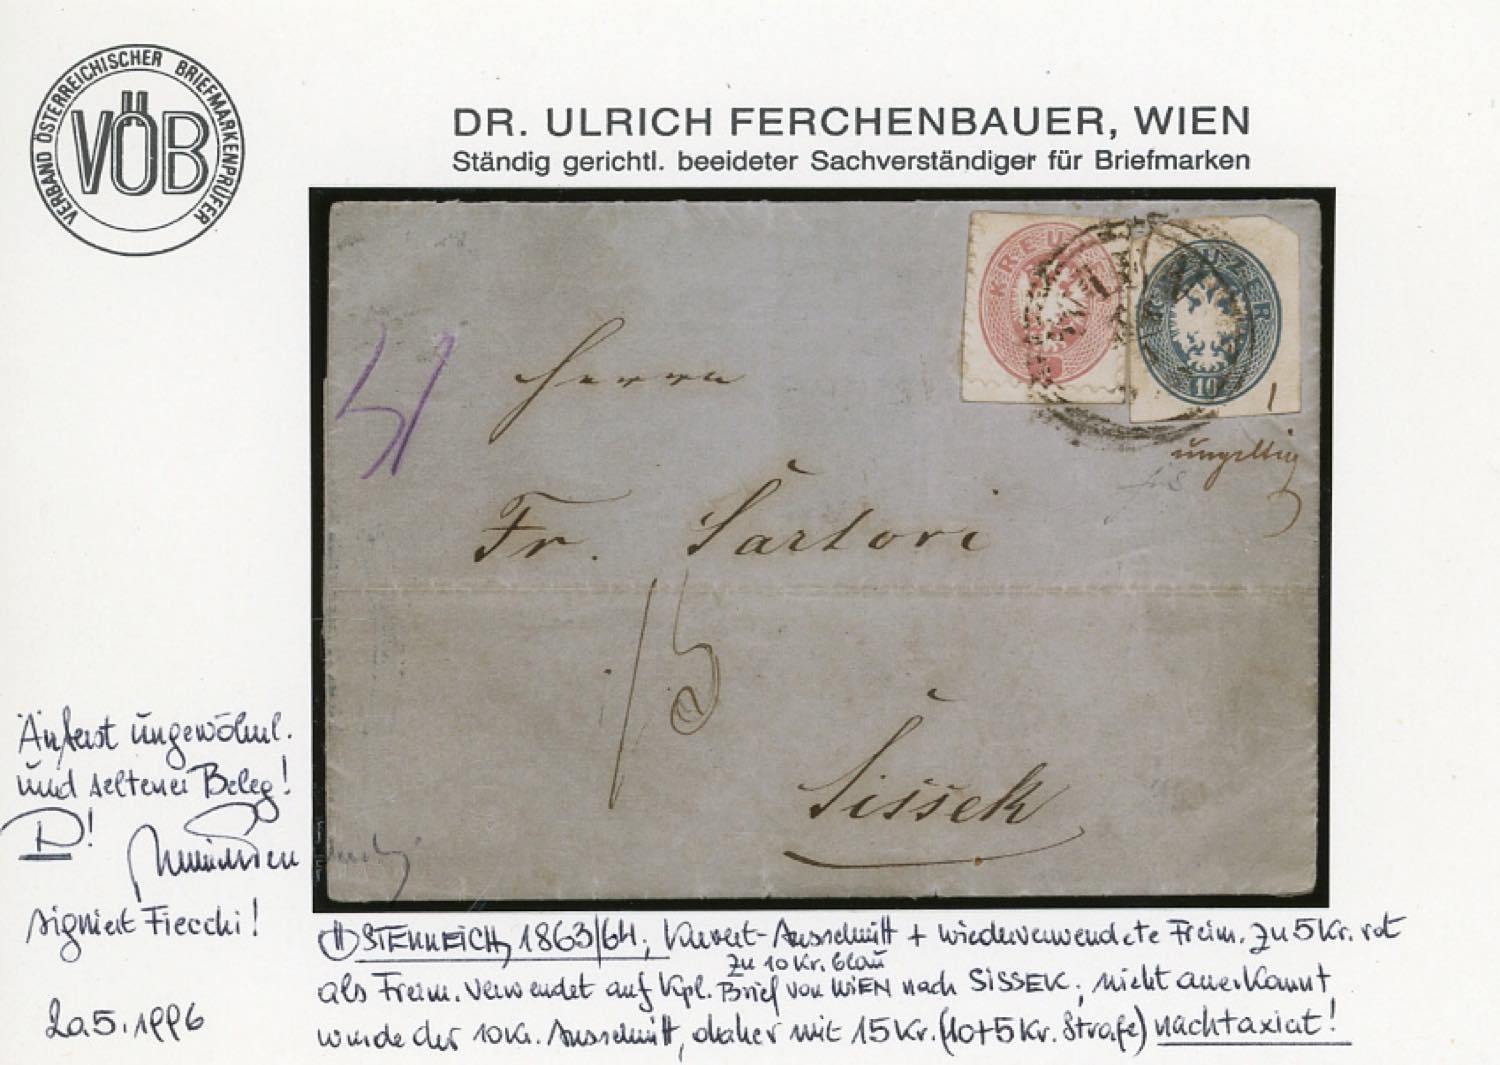 VERBAND ÖSTERREICHISCHER BRIEFMARKENPRÜFER
VÖB
DR. ULRICH FERCHENBAUER, WIEN
Ständig gerichtl. beeideter Sachverständiger für Briefmarken
KREU
UZER
10
WIEN
Herrn
ungiltig
Fr. Sartori
15
Sissek
Äußerst ungewöhnl.
und seltener Beleg!
signiert Fiecchi!
20.5.1996
ÖSTERREICH, 1863/64; Kuvert-Ausschnitt + wiederverwendete Freim. zu 5 Kr. rot
zu 10 Kr. blau
als Freim. verwendet auf kpl. Brief von WIEN nach SISSEK; nicht anerkannt
wurde der 10 Kr. Ausschnitt, daher mit 15 Kr. (10+5 Kr. Strafe) nachtaxiert!